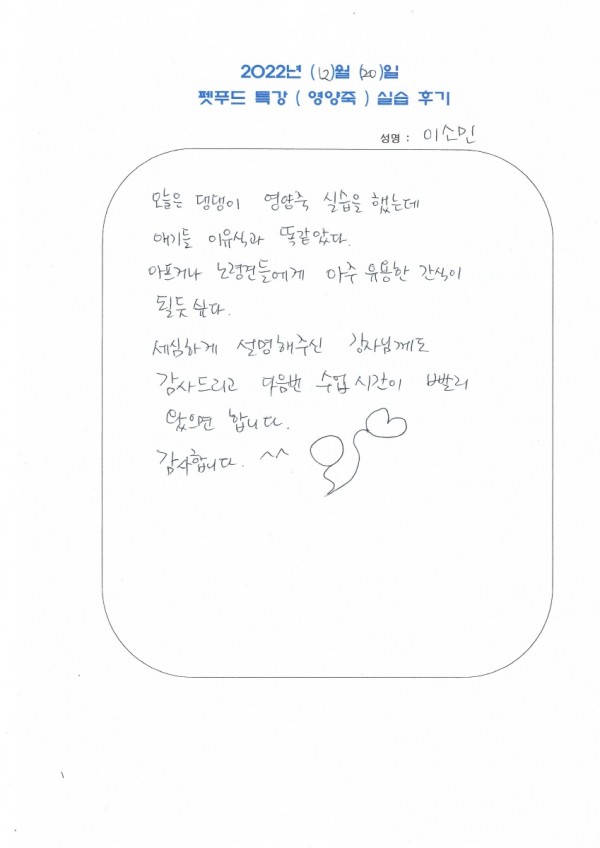 2022년 (12)월 (20)일
펫푸드 특강 ( 영양죽 ) 실습 후기
성명 : 이소민
오늘은 댕댕이 영양죽 실습을 했는데
애기들 이유식과 똑같았다.
아프거나 노령견들에게 아주 유용한 간식이
될듯 싶다.
세심하게 설명해주신 강사님께도
감사드리고 다음번 수업 시간이 빨리
왔으면 합니다.
감사합니다. ^^